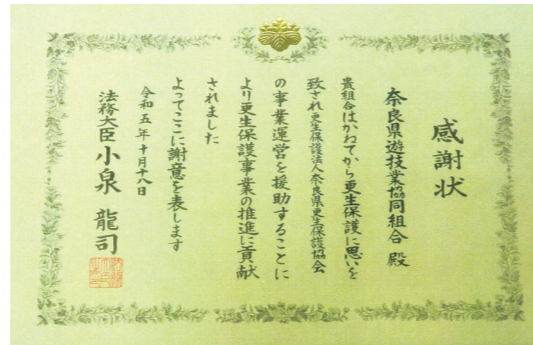 感謝状
奈良県遊技業協同組合 殿
貴組合はかねてから更生保護に思いを
致され更生保護法人奈良県更生保護協会
の事業運営を援助することに
より更生保護事業の推進に貢献
されました
よってここに謝意を表します
令和五年十月十八日
法務大臣 小泉 龍司